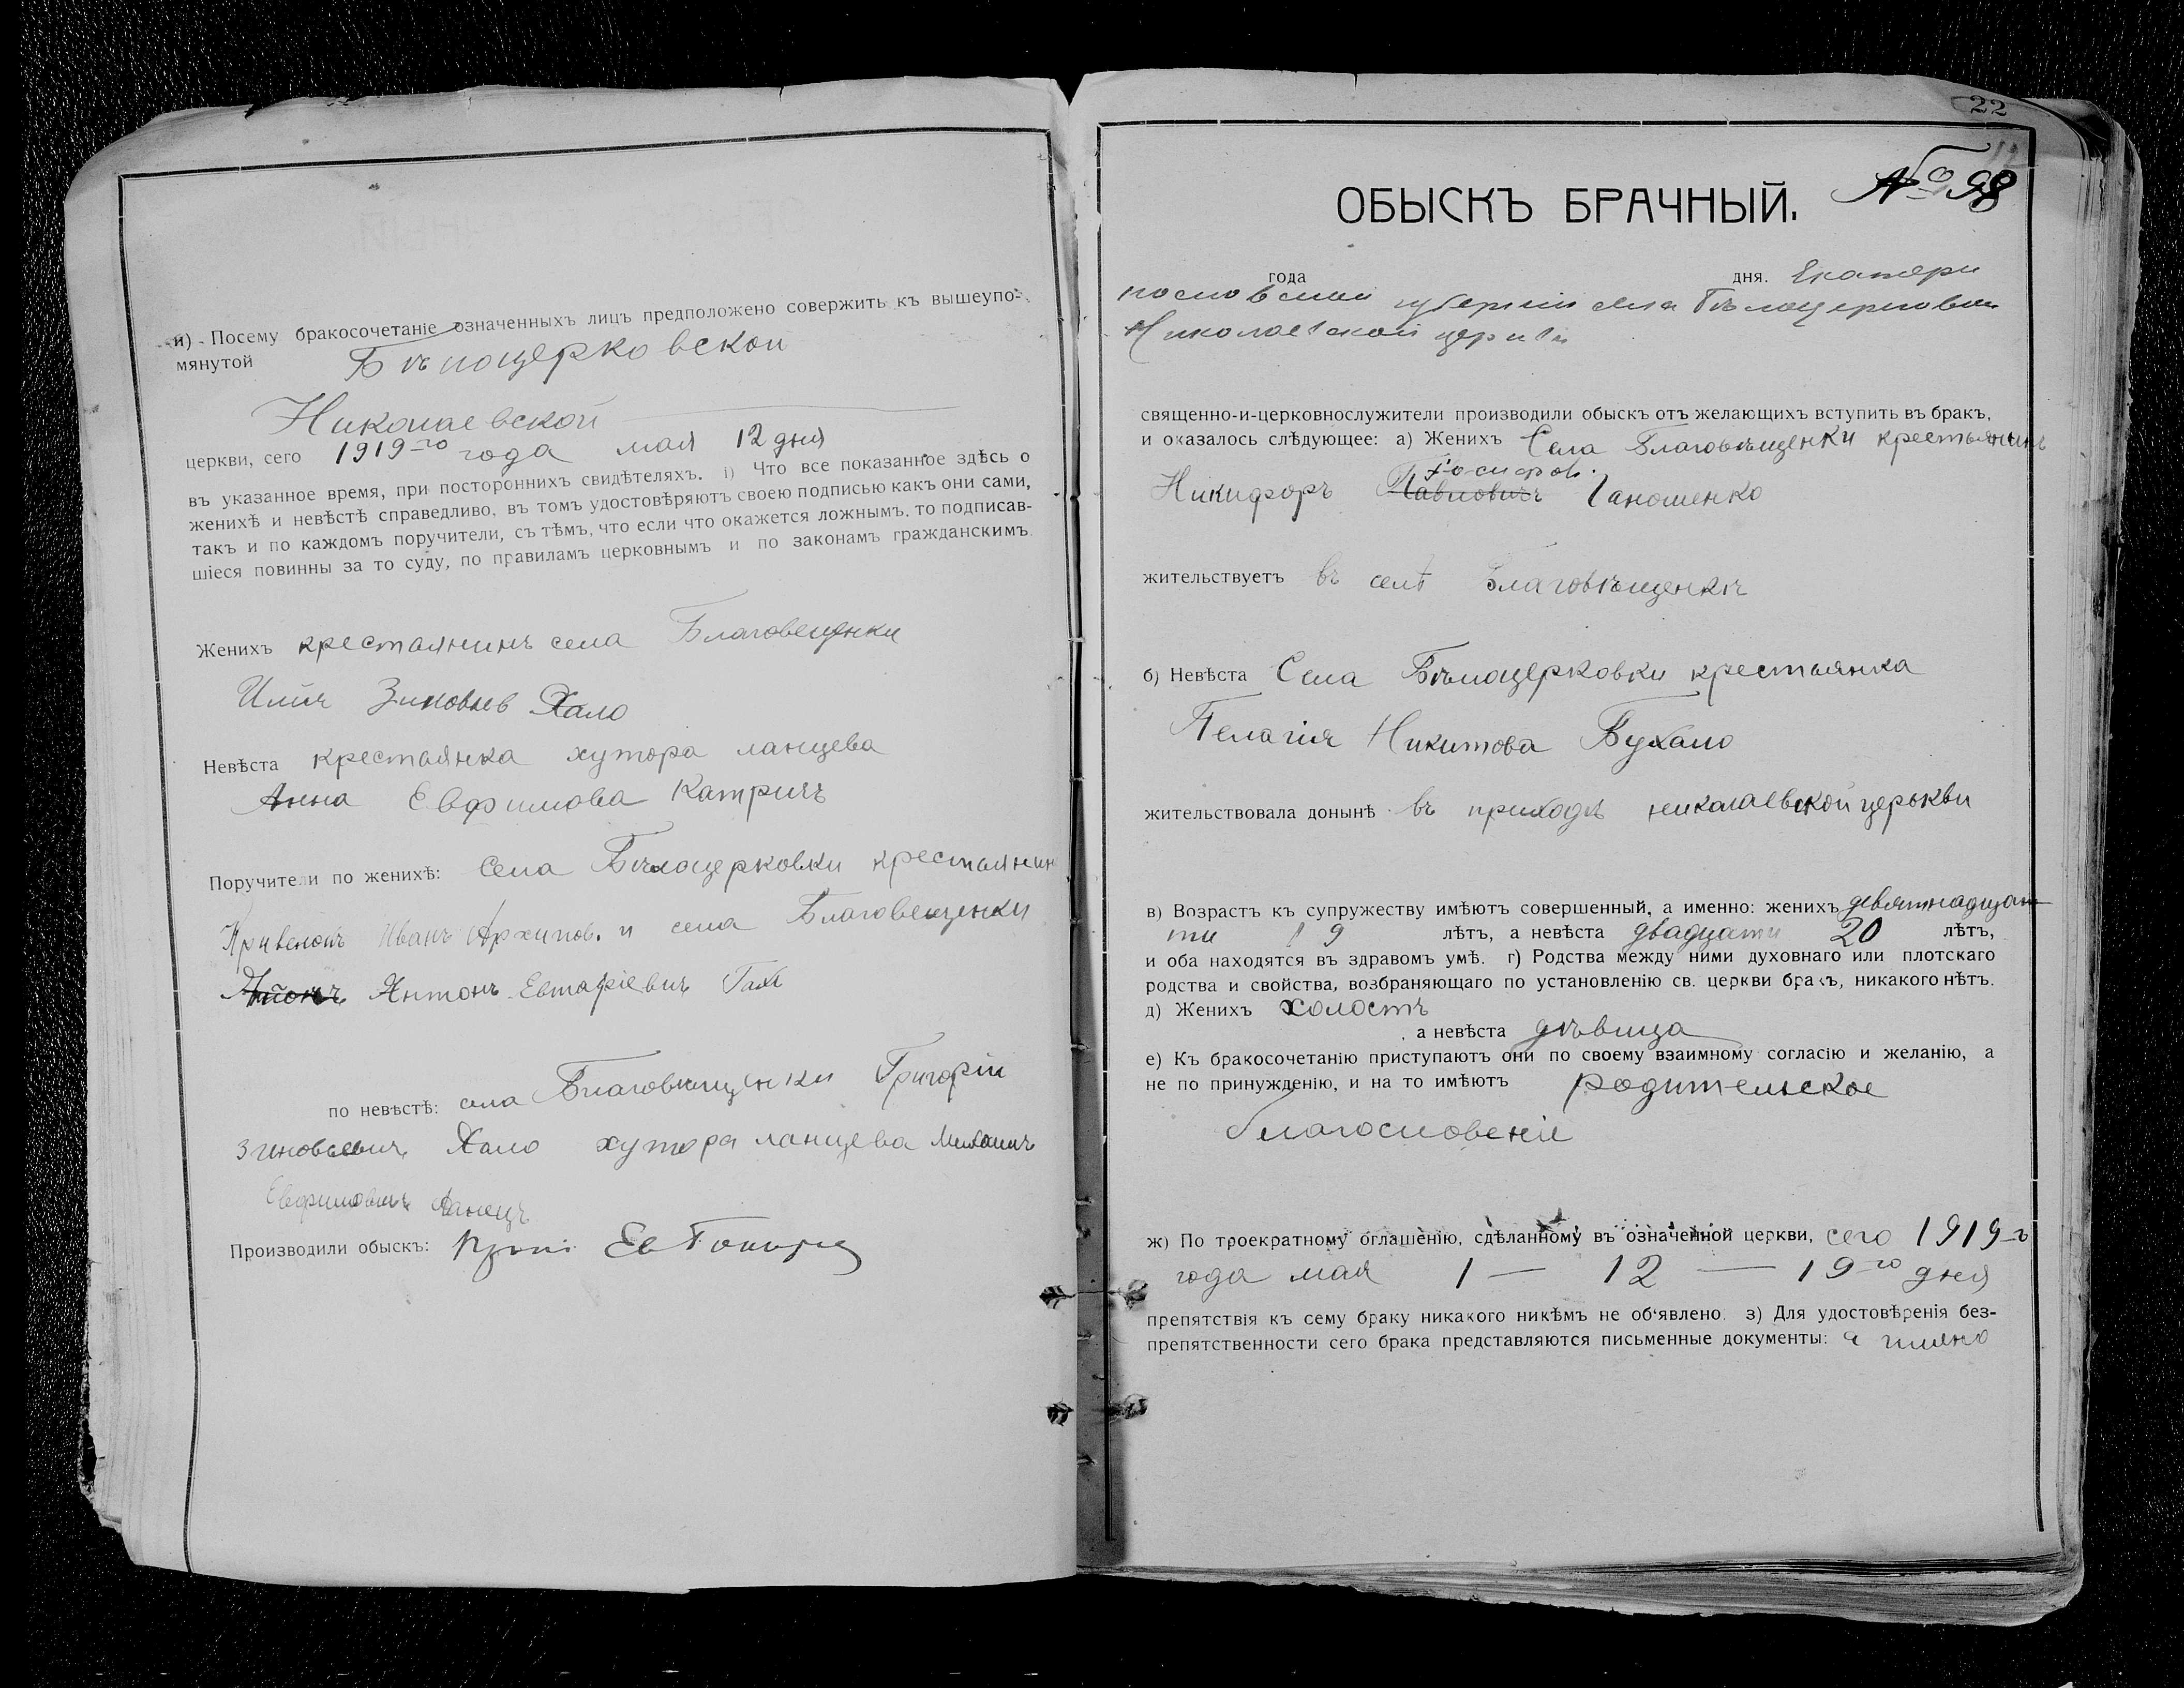 и) Посему бракосочетаніе означенныхъ лицъ предположено совержить къ вышеупо-
мянутой Бѣлоцерковской
Николаевской
церкви, сего 1919-го года мая 12 дня
въ указанное время, при постороннихъ свидѣтеляхъ. і) Что все показанное здѣсь о
женихѣ и невѣстѣ справедливо, въ томъ удостовѣряютъ своею подписью какъ они сами,
такъ и по каждомъ поручители, съ тѣмъ, что если что окажется ложнымъ, то подписав-
шіеся повинны за то суду, по правиламъ церковнымъ и по законамъ гражданскимъ.
Женихъ крестаянинъ села Благовещенки
Илія Зиновьев Хало
Невѣста крестаянка хутора ланцева
Анна Евфимова Катричъ
Поручители по женихѣ: Села Бѣлоцерковки крестаянин
Иванъ Архипов. и села Благовещенки
Антонъ Антонъ Евтафіевич
по невѣстѣ: села Благовѣщенки Григорій
Зиновьевич Хало хутора ланцева Михаилъ
Евфимовичъ
Производили обыскъ:
22
ОБЫСКЪ БРАЧНЫЙ. № 98
года дня. Екатери
нославской губерніи села Бѣлоцерковки
Николаевской церкви
священно-и-церковнослужители производили обыскъ отъ желающихъ вступить въ бракъ,
и оказалось слѣдующее: а) Женихъ Села Благовѣщенки крестьянинъ
Іосифов.
Никифоръ Павловичъ Ганошенко
жительствуетъ въ селѣ Благовѣщенкѣ
б) Невѣста Села Бѣлоцерковки крестьянка
Пелагія Никитова Бухало
жительствовала донынѣ въ приходѣ николаевской церькви
в) Возрастъ къ супружеству имѣютъ совершенный, а именно: женихъ девятнадцат
ти 19 лѣтъ, а невѣста двадцати 20 лѣтъ,
и оба находятся въ здравомъ умѣ. г) Родства между ними духовнаго или плотскаго
родства и свойства, возбраняющаго по установленію св. церкви бракъ, никакого нѣтъ.
д) Женихъ холостъ
, а невѣста дѣвица
е) Къ бракосочетанію приступаютъ они по своему взаимному согласію и желанію, а
не по принужденію, и на то имѣютъ родительское
благословеніе
ж) По троекратному оглашенію, сдѣланному въ означенной церкви, сего 1919-г
года мая 1 — 12 — 19го дня
препятствія къ сему браку никакого никѣмъ не об'явлено. з) Для удостовѣренія без-
препятственности сего брака представляются письменные документы: